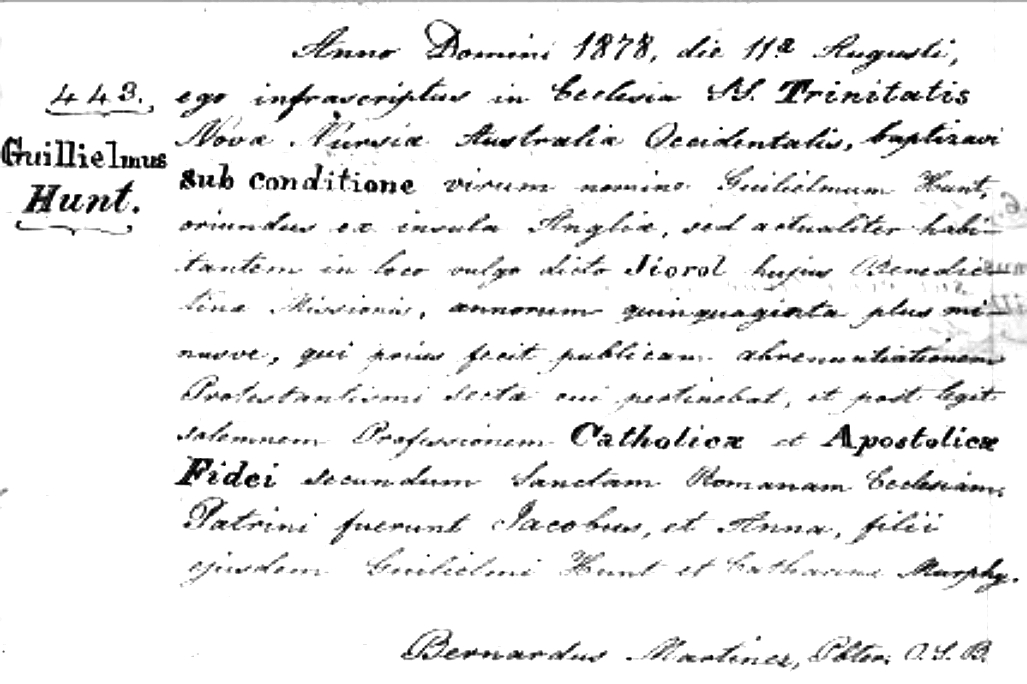 Anno Domini 1878, die 11ª Augusti,
443.
ego infrascriptus in Ecclesia SS. Trinitatis
Novæ Nursiæ Australiæ Occidentalis, baptizavi
Guillielmus
Hunt.
sub conditione virum nomine Guilielmum Hunt,
oriundus ex insula Angliæ, sed actualiter habi-
tantem in loco vulgo dicto hujus Benedic-
tinæ Missionis, annorum quinquaginta plus mi-
nusve, qui prius fecit publicam abrenuntiationem
Protestantismi sectæ cui pertinebat, et post legit
solemnem Professionem Catholicæ et Apostolicæ
Fidei secundum Sanctam Romanam Ecclesiam.
Patrini fuerunt Jacobus, et Anna, filii
ejusdem Guilielmi Hunt et Catharinæ Murphy.
Bernardus Martinez, Pbter. O.S.B.